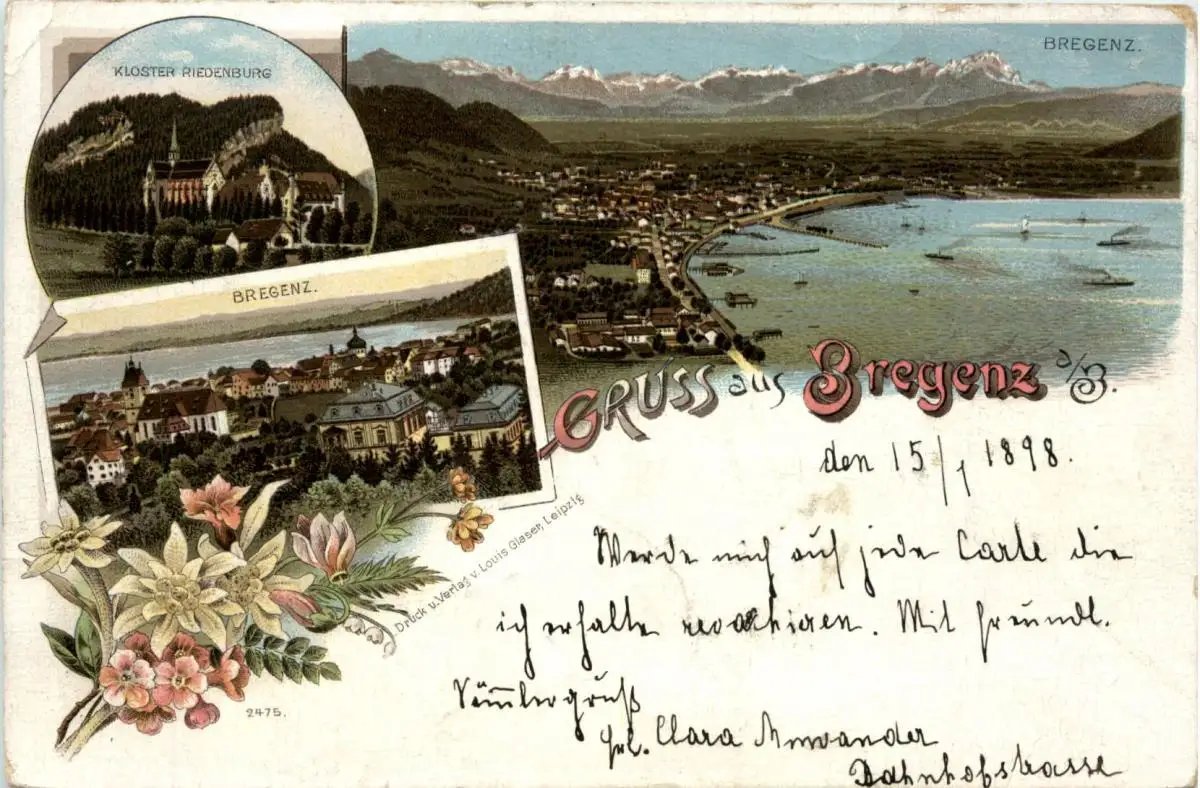 KLOSTER RIEDENBURG
BREGENZ.
BREGENZ.
GRUSS aus Bregenz a/B.
den 15/1 1898.
Werde mich auf jede Carte die
ich erhalte revachieren. Mit freundl.
Sammlergruß
Frl. Clara
Bahnhofstrasse
Druck u. Verlag v. Louis Glaser, Leipzig
2475.